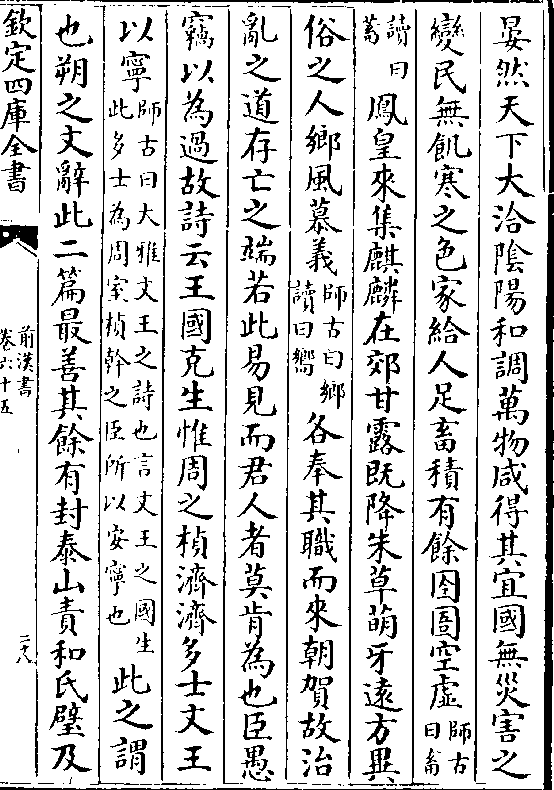 晏然天下大洽隂陽和調萬物咸得其宜國無災害之
變民無飢寒之色家給人足畜積有餘囹圄空虛師古曰畜
讀曰蓄鳳皇來集麒麟在郊甘露既降朱草萌牙逺方異
俗之人鄉風慕義師古曰鄉讀曰嚮各奉其職而來朝賀故治
亂之道存亡之端若此易見而君人者莫肯為也臣愚
竊以為過故詩云王國克生惟周之楨濟濟多士文王
以寧師古曰大雅文王之詩也言文王之國生此多士為周室楨幹之臣所以安寧也此之謂
也朔之文辭此二篇最善其餘有封泰山責和氏璧及
欽定四庫全書
前漢書
卷六十五
二八